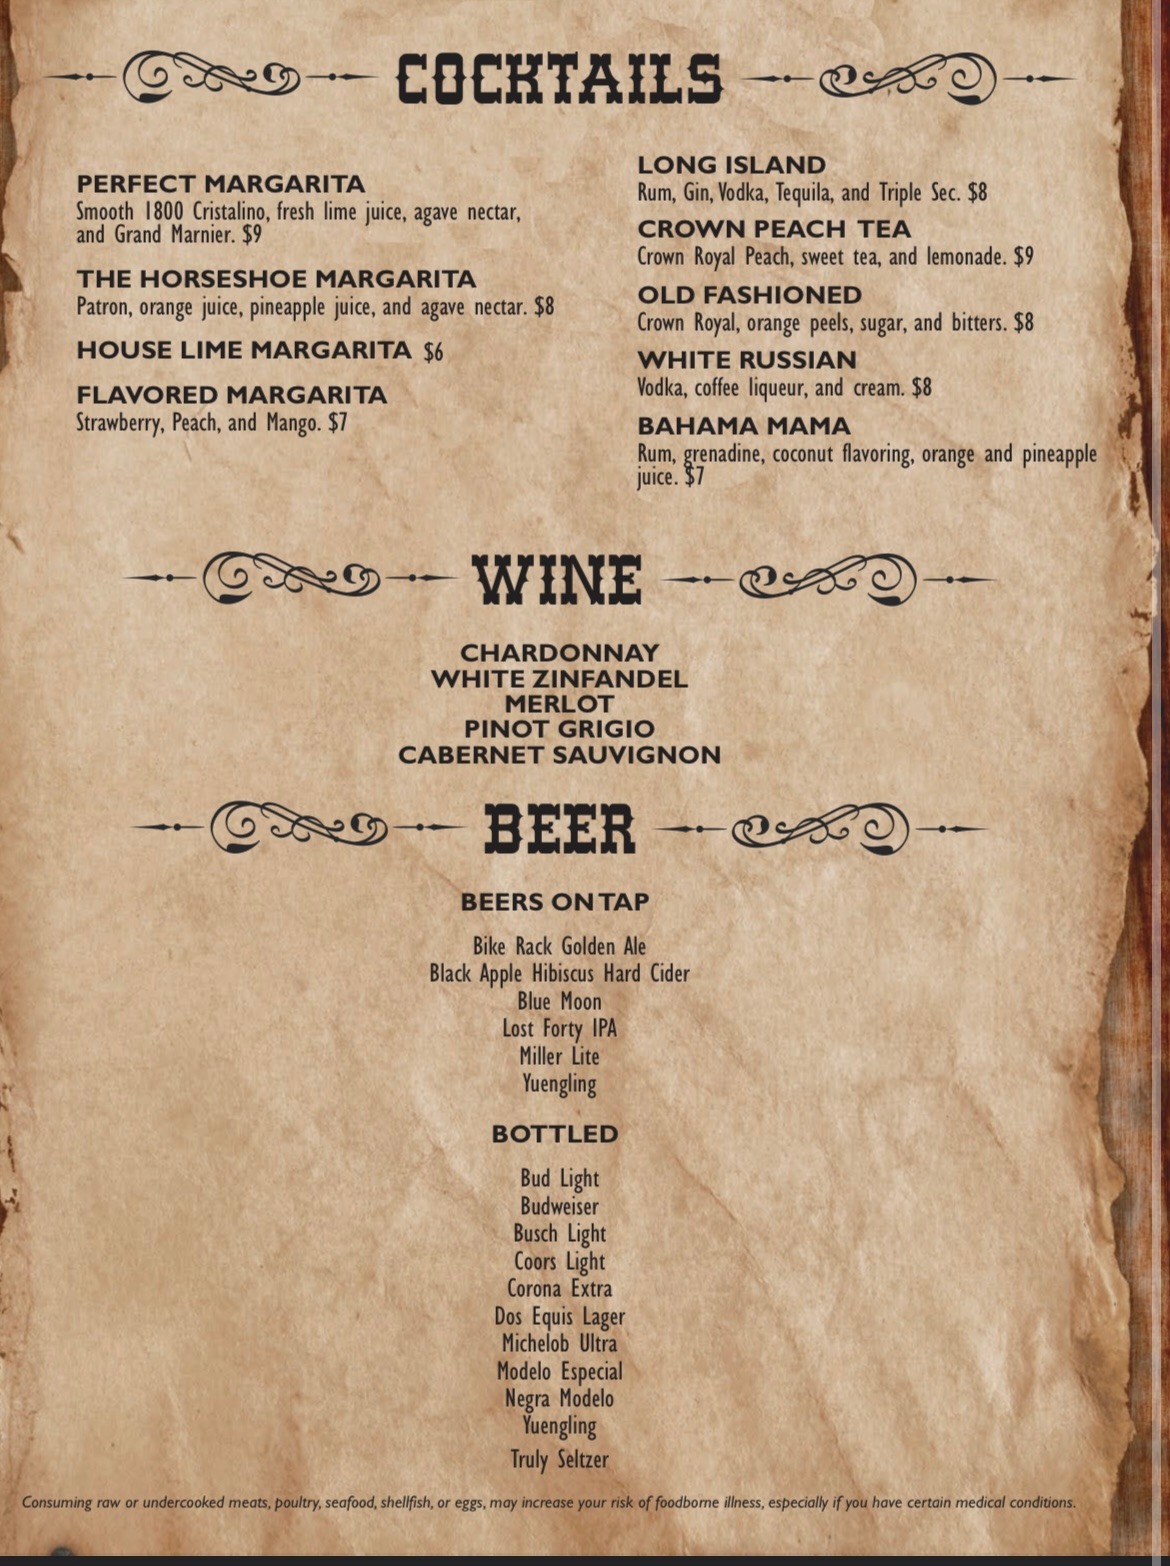 COCKTAILS
PERFECT MARGARITA
Smooth 1800 Cristalino, fresh lime juice, agave nectar,
and Grand Marnier. $9
THE HORSESHOE MARGARITA
Patron, orange juice, pineapple juice, and agave nectar. $8
HOUSE LIME MARGARITA $6
FLAVORED MARGARITA
Strawberry, Peach, and Mango. $7
LONG ISLAND
Rum, Gin, Vodka, Tequila, and Triple Sec. $8
CROWN PEACH TEA
Crown Royal Peach, sweet tea, and lemonade. $9
OLD FASHIONED
Crown Royal, orange peels, sugar, and bitters. $8
WHITE RUSSIAN
Vodka, coffee liqueur, and cream. $8
BAHAMA MAMA
Rum, grenadine, coconut flavoring, orange and pineapple
juice. $7
WINE
CHARDONNAY
WHITE ZINFANDEL
MERLOT
PINOT GRIGIO
CABERNET SAUVIGNON
BEER
BEERS ON TAP
Bike Rack Golden Ale
Black Apple Hibiscus Hard Cider
Blue Moon
Lost Forty IPA
Miller Lite
Yuengling
BOTTLED
Bud Light
Budweiser
Busch Light
Coors Light
Corona Extra
Dos Equis Lager
Michelob Ultra
Modelo Especial
Negra Modelo
Yuengling
Truly Seltzer
Consuming raw or undercooked meats, poultry, seafood, shellfish, or eggs, may increase your risk of foodborne illness, especially if you have certain medical conditions.